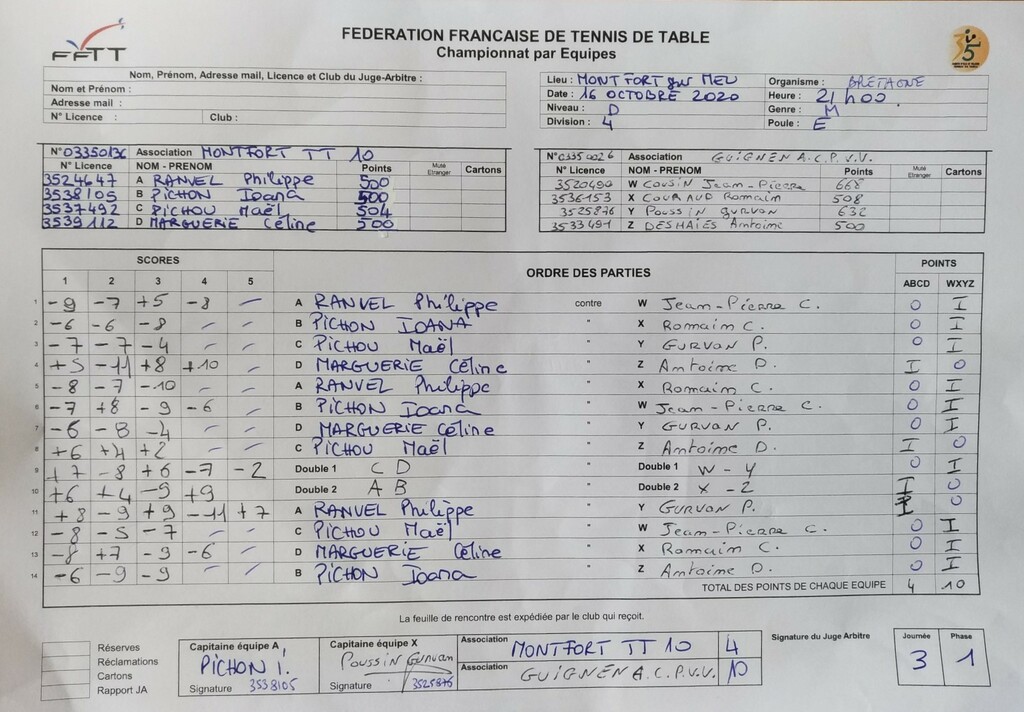 FFTT
FEDERATION FRANCAISE DE TENNIS DE TABLE
Championnat par Equipes
35
Nom, Prénom, Adresse mail, Licence et Club du Juge-Arbitre :
Nom et Prénom :
Adresse mail :
N° Licence : Club :
Lieu : MONTFORT sur MEU Organisme : BRETAGNE
Date : 16 OCTOBRE 2020 Heure : 21h00.
Niveau : D Genre : M
Division : 4 Poule : E
N° 03350136 Association MONTFORT TT 10
N° Licence NOM - PRENOM Points Muté Etranger Cartons
3524647 A RANVEL Philippe 500
3538105 B PICHON Ioana 500
3537492 C PICHOU Maël 504
3539112 D MARGUERIE Céline 500
N° 0335 0026 Association GUIGNEN A.C.P.V.V.
N° Licence NOM - PRENOM Points Muté Etranger Cartons
3520490 W COUSIN Jean-Pierre 668
3536153 X COURAUD Romain 508
3525876 Y POUSSIN GURVAN 632
3533491 Z DESHAIES Antoine 500
SCORES ORDRE DES PARTIES POINTS
1 2 3 4 5 ABCD WXYZ
1 -9 -7 +5 -8 - A RANVEL Philippe contre W Jean-Pierre C. 0 I
2 -6 -6 -8 - - B PICHON IOANA " X Romain C. 0 I
3 -7 -7 -4 - - C PICHOU Maël " Y GURVAN P. 0 I
4 +5 -11 +8 +10 - D MARGUERIE Céline " Z Antoine D. I 0
5 -8 -7 -10 - - A RANVEL Philippe " X Romain C. 0 I
6 -7 +8 -9 -6 - B PICHON Ioana " W Jean-Pierre C. 0 I
7 -6 -8 -4 - - D MARGUERIE Céline " Y GURVAN P. 0 I
8 +6 +4 +2 - - C PICHOU Maël " Z Antoine D. I 0
9 +7 -8 +6 -7 -2 Double 1 C D " Double 1 W - Y 0 I
10 +6 +4 -9 +9 Double 2 A B " Double 2 X - Z I 0
11 +8 -9 +9 -11 +7 A RANVEL Philippe " Y GURVAN P. I 0
12 -8 -5 -7 - - C PICHOU Maël " W Jean-Pierre C. 0 I
13 -8 +7 -9 -6 - D MARGUERIE Céline " X Romain C. 0 I
14 -6 -9 -9 - - B PICHON Ioana " Z Antoine D. 0 I
TOTAL DES POINTS DE CHAQUE EQUIPE 4 10
La feuille de rencontre est expédiée par le club qui reçoit.
Réserves
Réclamations
Cartons
Rapport JA
Capitaine équipe A,
PICHON I.
Signature 3538105
Capitaine équipe X
Poussin Gurvan
Signature 3525876
Association MONTFORT TT 10 4
Association GUIGNEN A.C.P.V.V. 10
Signature du Juge Arbitre
Journée Phase
3 1